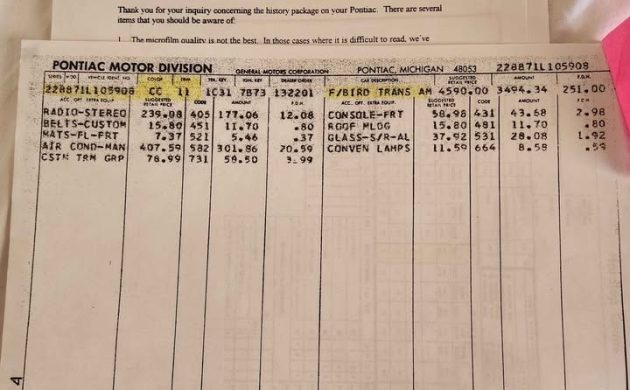 Thank you for your inquiry concerning the history package on your Pontiac. There are several
items that you should be aware of:
1. The microfilm quality is not the best. In those cases where it is difficult to read, we've
PONTIAC MOTOR DIVISION GENERAL MOTORS CORPORATION PONTIAC, MICHIGAN 48053 228871L105908
SERIES VEHICLE IDENT. NO. COLOR TRIM IGN. KEY DEALER ORDER CAR DESCRIPTION SUGGESTED RETAIL PRICE AMOUNT
228871L105908 CC 11 1C31 7B73 132201 F/BIRD TRANS AM 4590.00 3494.34 251.00
ACC. OPT. EXTRA EQUIP. SUGGESTED RETAIL PRICE CODE AMOUNT ACC. OPT. EXTRA EQUIP. SUGGESTED RETAIL PRICE CODE AMOUNT
RADIO-STEREO 239.08 405 177.06 12.08 CONSOLE-FRT 58.98 431 43.68 2.98
BELTS-CUSTOM 15.80 451 11.70 .80 ROOF MLDG 15.80 481 11.70 .80
MATS-FL-FRT 7.37 521 5.46 .37 GLASS-S/R-AL 37.92 531 28.08 1.92
AIR COND-MAN 407.59 582 301.86 20.59 CONVEN LAMPS 11.59 664 8.58 .59
CSTM TRM GRP 78.99 731 58.50 3.99
4